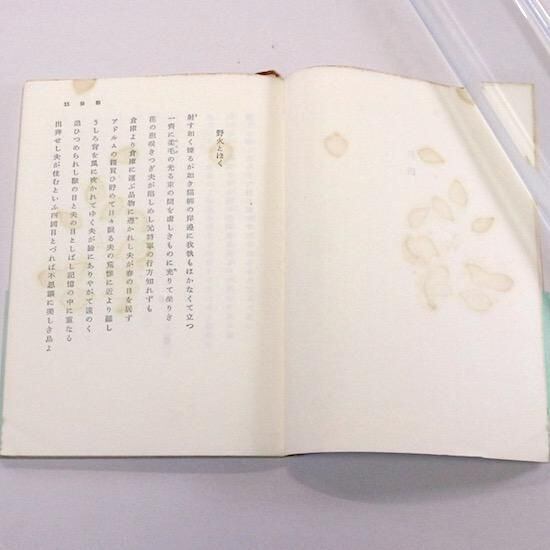 野火とほく
射す如く煙るが如き陽の岸邊に我執もはかなくて立つ
一齊に柔毛の光る束の間を虚しきものに充りて坐りき
花の咲きつぎ夫がしめし元將軍の行方知れずも
倉庫より倉庫に運ぶ品物に憑かれし夫が春の日を居ず
アドルムの箱買ひ貯めて日々眠る夫の荒惨に近より難し
うしろ背を風に吹かれてゆく夫がにありやがて遠のく
追ひつめられし獸の目と夫の目としばし記憶の中に重なる
出奔せし夫が住むといふ四國目とづれば不思議に美しき島よ
15